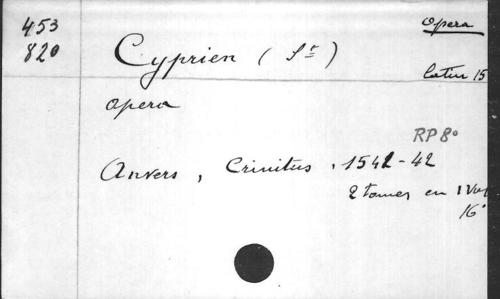 453
820
Opera
Cyprien (St)
latin 15
Opera
RP 8°
Anvers, Crinitus, 1541-42
2 tomes en 1 Vol
16°